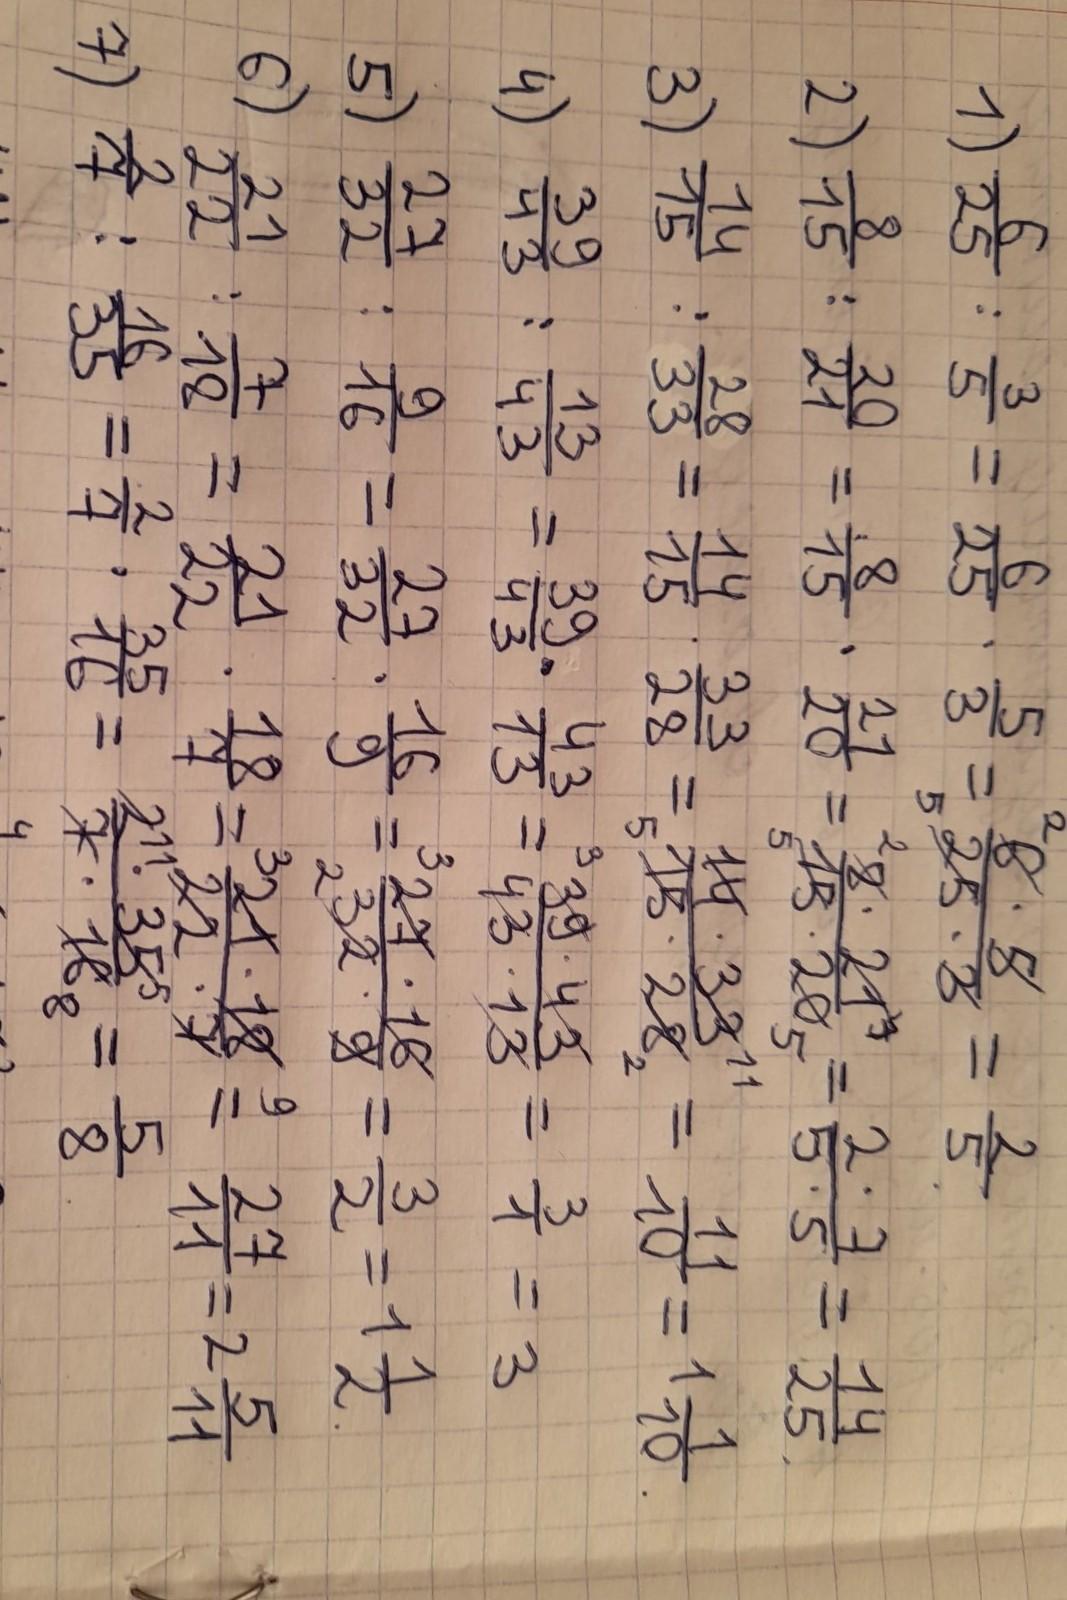 1) 6/25 : 3/5 = 6/25 · 5/3 = ²6·5/₅25·3 = 2/5.
2) 8/15 : 20/21 = 8/15 · 21/20 = ²8·21⁷/₅15·20₅ = 2·7/5·5 = 14/25.
3) 14/15 : 28/33 = 14/15 · 33/28 = 14·33¹¹/₅15·28₂ = 11/10 = 1 1/10.
4) 39/43 : 13/43 = 39/43 · 43/13 = ³39·43/43·13 = 3/1 = 3
5) 27/32 : 9/16 = 27/32 · 16/9 = ³27·16/₂32·9 = 3/2 = 1 1/2.
6) 21/22 : 7/18 = 21/22 · 18/7 = ³21·18⁹/₁₁22·7 = 27/11 = 2 5/11
7) 2/7 : 16/35 = 2/7 · 35/16 = 2·35⁵/7·16₈ = 5/8.